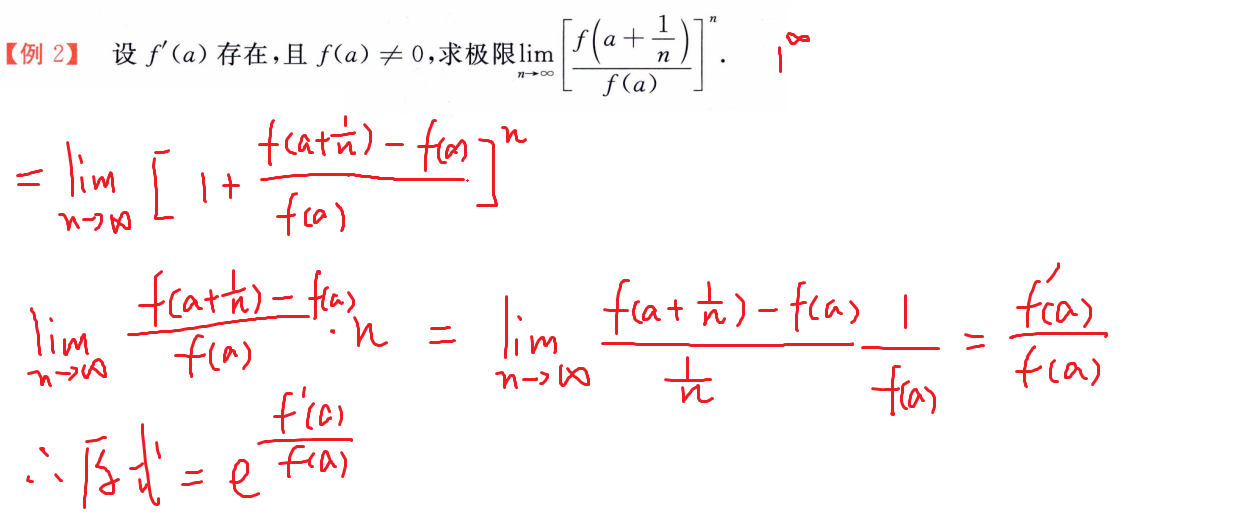 【例 2】 设 f′(a) 存在,且 f(a) ≠ 0,求极限 lim_{n→∞} [f(a + 1/n) / f(a)]^n . 1^∞
= lim_{n→∞} [1 + (f(a+1/n) - f(a)) / f(a)]^n
lim_{n→∞} (f(a+1/n) - f(a)) / f(a) · n = lim_{n→∞} (f(a + 1/n) - f(a)) / (1/n) 1/f(a) = f′(a)/f(a)
∴ 原式 = e^{f′(a)/f(a)}